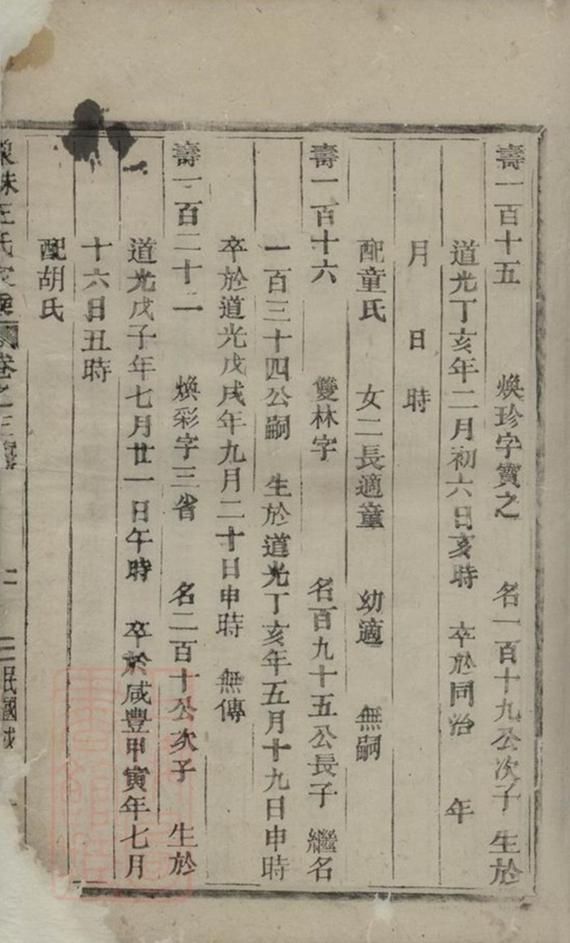 壽一百十五　煥珍字寶之　名一百十九公次子 生於
道光丁亥年二月初六日亥時　卒於同治　年
月　日　時
配童氏　女二長適童　幼適　無嗣
壽一百十六　雙林字　名百九十五公長子　繼名
一百三十四公嗣　生於道光丁亥年五月十九日申時
卒於道光戊戌年九月二十日申時　無傳
壽一百二十二　煥彩字三省　名二百十公次子　生於
道光戊子年七月廿一日午時　卒於咸豐甲寅年七月
十六日丑時
配胡氏
王氏　卷之三　二　民國